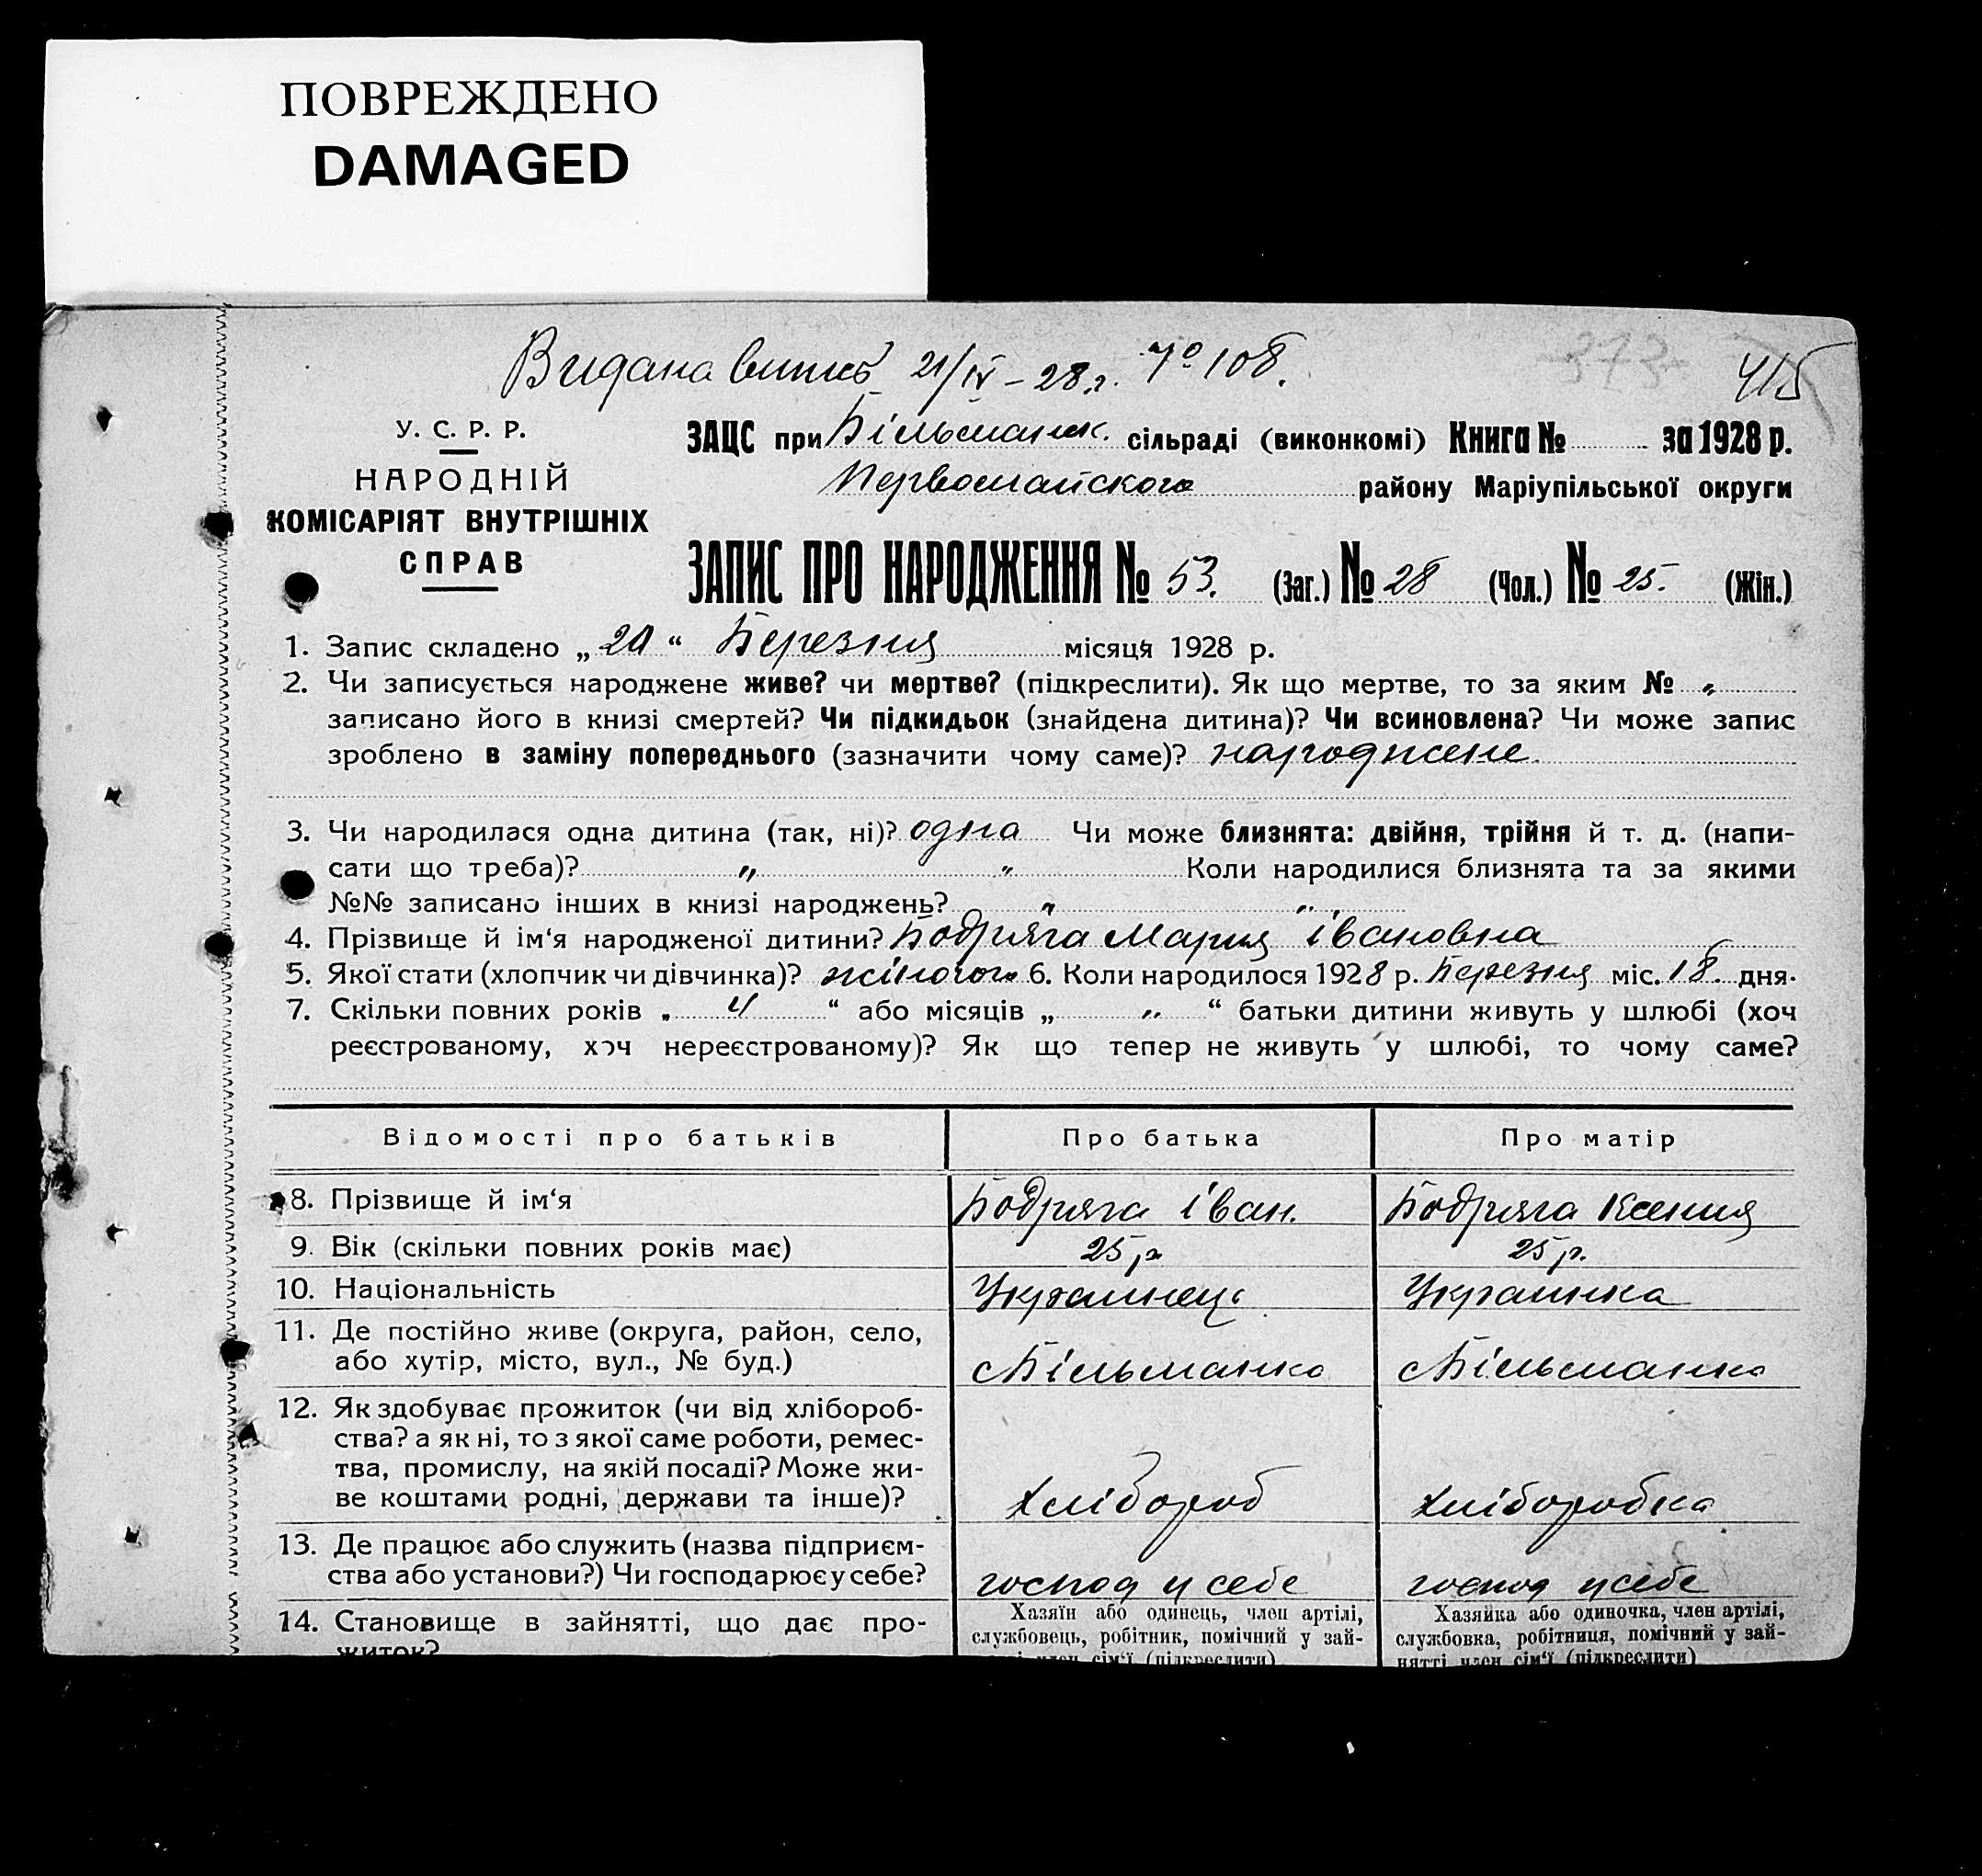 ПОВРЕЖДЕНО
DAMAGED
Видана 21/IV – 28 г. № 108.
373
415
У. С. Р. Р.
НАРОДНІЙ
КОМІСАРІЯТ ВНУТРІШНІХ
СПРАВ
ЗАЦС при Більманк. сільраді (виконкомі) Книга № за 1928 р.
Первомайского району Маріупільської округи
ЗАПИС ПРО НАРОДЖЕННЯ № 53. (Заг.) № 28 (Чол.) № 25. (Жін.)
1. Запис складено „ 20 “ Березня місяця 1928 р.
2. Чи записується народжене живе? чи мертве? (підкреслити). Як що мертве, то за яким № „
записано його в книзі смертей? Чи підкидьок (знайдена дитина)? Чи всиновлена? Чи може запис
зроблено в заміну попереднього (зазначити чому саме)? народжене.
3. Чи народилася одна дитина (так, ні)? одна Чи може близнята: двійня, трійня й т. д. (напи-
сати що треба)? „ „ Коли народилися близнята та за якими
№№ записано інших в книзі народжень? „ „
4. Прізвище й ім‘я народженої дитини? Бодряга Мария Івановна
5. Якої стати (хлопчик чи дівчинка)? жіночого 6. Коли народилося 1928 р. Березня міс. 18. дня.
7. Скільки повних років „ 4 “ або місяців „ „ “ батьки дитини живуть у шлюбі (хоч
реєстрованому, хоч нереєстрованому)? Як що тепер не живуть у шлюбі, то чому саме?
Відомості про батьків Про батька Про матір
8. Прізвище й ім‘я Бодряга Іван. Бодряга Ксения
9. Вік (скільки повних років має) 25 р. 25 р.
10. Національність Украинець Украинка
11. Де постійно живе (округа, район, село,
або хутір, місто, вул., № буд.) с Більманка с Більманка
12. Як здобуває прожиток (чи від хлібороб-
ства? а як ні, то з якої саме роботи, ремес-
тва, промислу, на якій посаді? Може жи-
ве коштами родні, держави та інше)? Хлібороб Хліборобка
13. Де працює або служить (назва підприєм-
ства або установи?) Чи господарює у себе? господ у себе господ у себе
14. Становище в зайнятті, що дає про-
житок?
Хазяїн або одинець, член артілі,
службовець, робітник, помічний у зай-
нятті член сім‘ї (підкреслити)
Хазяйка або одиночка, член артілі,
службовка, робітниця, помічний у зай-
нятті член сім‘ї (підкреслити)